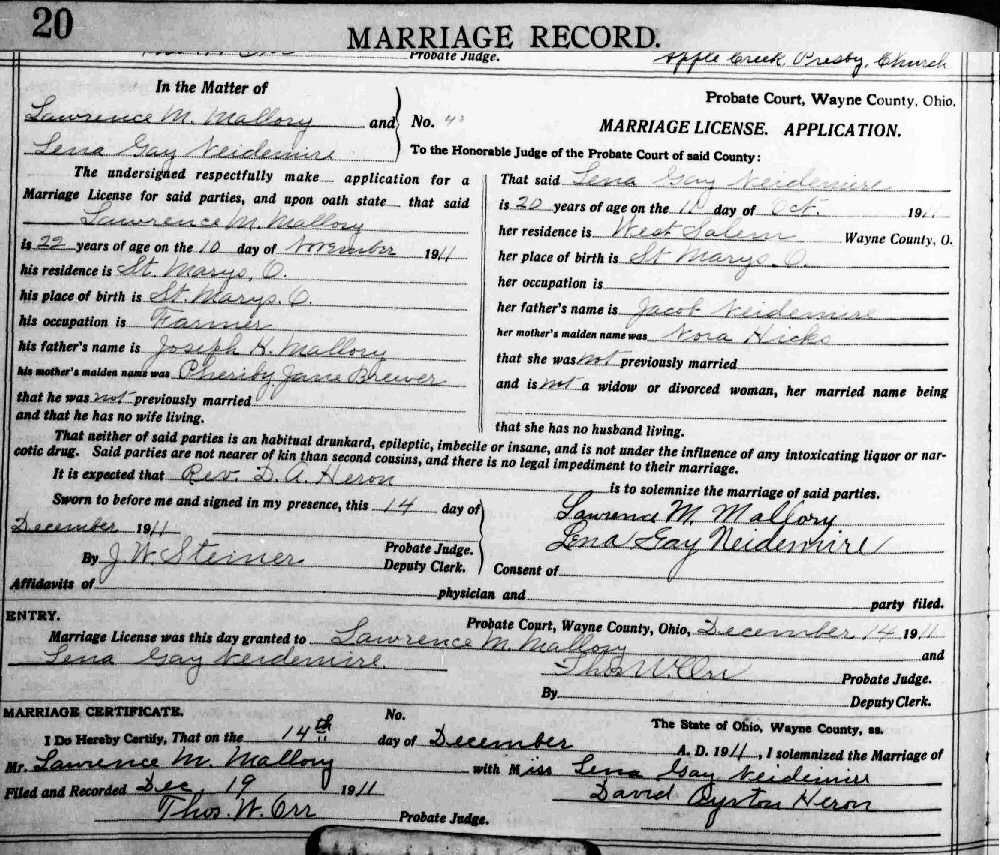 20
MARRIAGE RECORD.
Probate Judge.
Apple Creek Presby. Church
In the Matter of
Lawrence M. Mallory and
Lena Gay Neidemire
No.
Probate Court, Wayne County, Ohio.
MARRIAGE LICENSE. APPLICATION.
To the Honorable Judge of the Probate Court of said County:
The undersigned respectfully make application for a
Marriage License for said parties, and upon oath state that said
Lawrence M. Mallory
is 22 years of age on the 10 day of November 1911
his residence is St. Marys, O.
his place of birth is St. Marys. O.
his occupation is Farmer
his father's name is Joseph H. Mallory
his mother's maiden name was Cherity Jane Brewer
that he was not previously married
and that he has no wife living.
That said Lena Gay Neidemire
is 20 years of age on the 11 day of Oct. 1911
her residence is West Salem Wayne County, O.
her place of birth is St Marys. O.
her occupation is
her father's name is Jacob Neidemire
her mother's maiden name was Nora Hicks
that she was not previously married
and is not a widow or divorced woman, her married name being
that she has no husband living.
That neither of said parties is an habitual drunkard, epileptic, imbecile or insane, and is not under the influence of any intoxicating liquor or nar-
cotic drug. Said parties are not nearer of kin than second cousins, and there is no legal impediment to their marriage.
It is expected that Rev. D. A. Heron is to solemnize the marriage of said parties.
Sworn to before me and signed in my presence, this 14 day of
December 1911
Probate Judge.
By J. W. Steiner Deputy Clerk.
Lawrence M. Mallory
Lena Gay Neidemire
Consent of
Affidavits of physician and party filed.
ENTRY.
Probate Court, Wayne County, Ohio, December 14 1911
Marriage License was this day granted to Lawrence M. Mallory and
Lena Gay Neidemire
Thos. W. Orr Probate Judge.
By Deputy Clerk.
MARRIAGE CERTIFICATE.
No.
The State of Ohio, Wayne County, ss.
I Do Hereby Certify, That on the 14th day of December A. D. 1911, I solemnized the Marriage of
Mr. Lawrence M. Mallory with Miss Lena Gay Neidemire
Filed and Recorded Dec 19 1911
David Ayrton Heron
Thos. W. Orr Probate Judge.